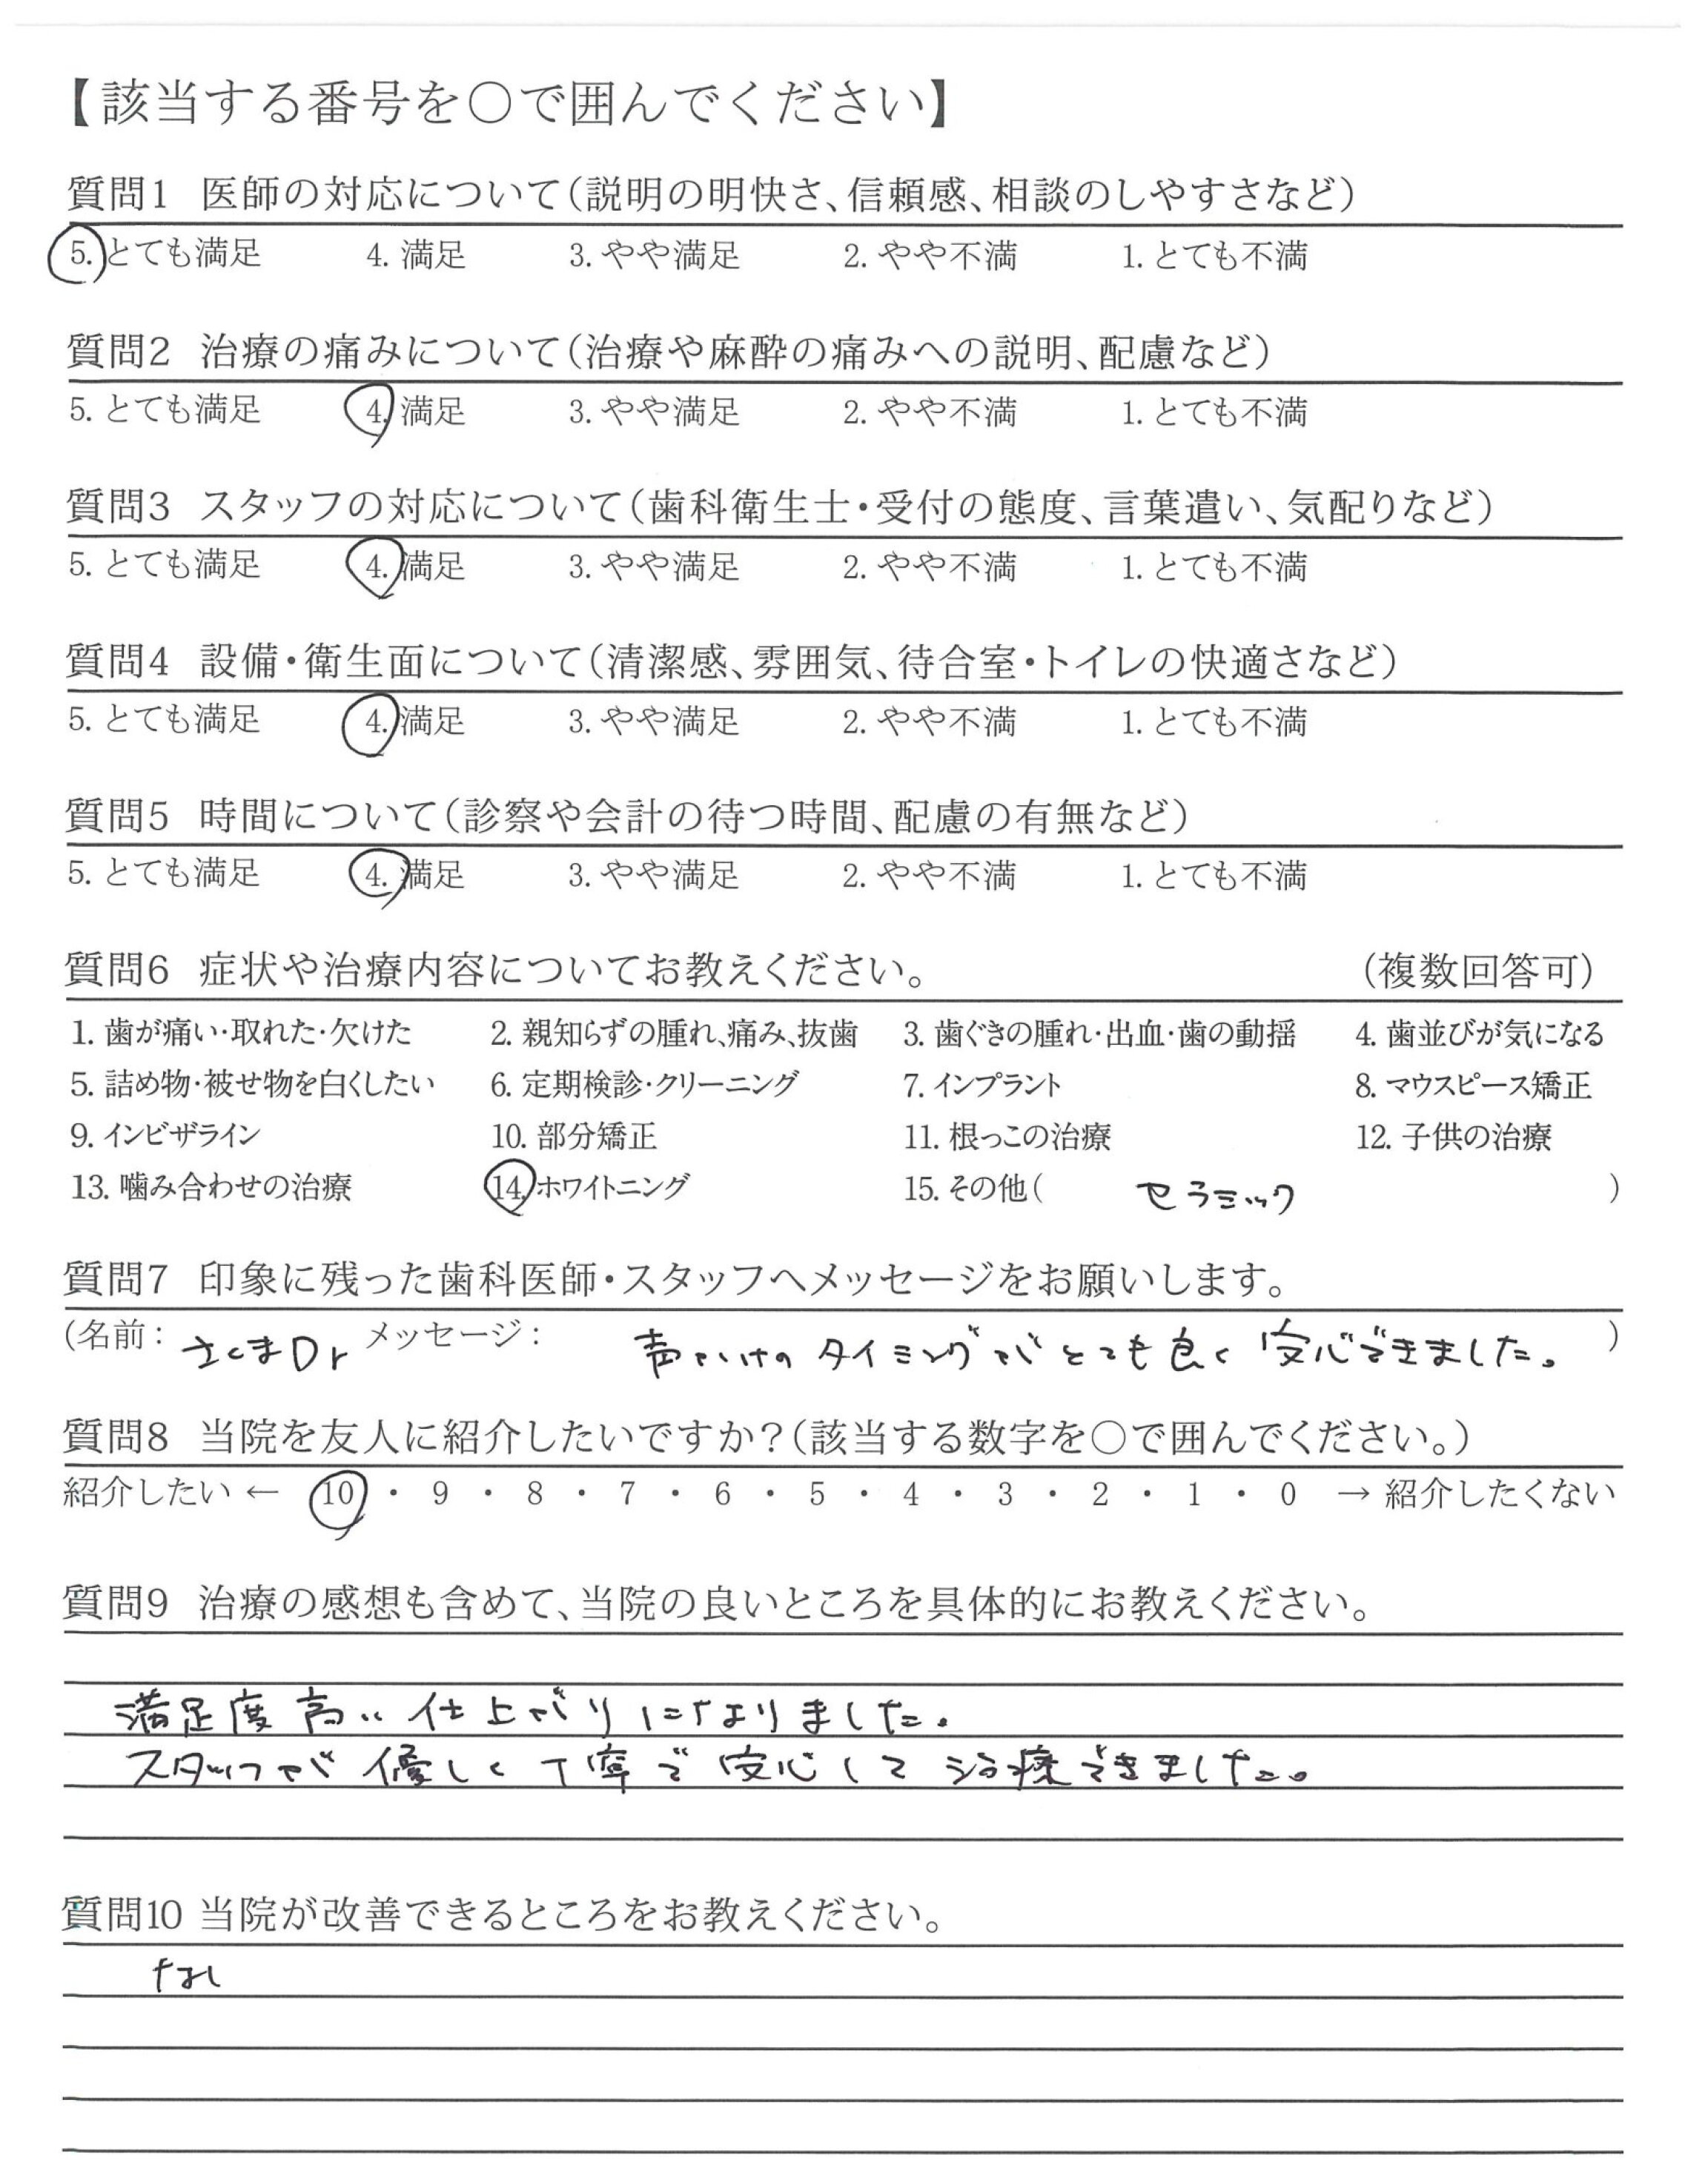 【該当する番号を〇で囲んでください】
質問1 医師の対応について(説明の明快さ、信頼感、相談のしやすさなど)
5. とても満足 4. 満足 3. やや満足 2. やや不満 1. とても不満
質問2 治療の痛みについて(治療や麻酔の痛みへの説明、配慮など)
5. とても満足 4. 満足 3. やや満足 2. やや不満 1. とても不満
質問3 スタッフの対応について(歯科衛生士・受付の態度、言葉遣い、気配りなど)
5. とても満足 4. 満足 3. やや満足 2. やや不満 1. とても不満
質問4 設備・衛生面について(清潔感、雰囲気、待合室・トイレの快適さなど)
5. とても満足 4. 満足 3. やや満足 2. やや不満 1. とても不満
質問5 時間について(診察や会計の待つ時間、配慮の有無など)
5. とても満足 4. 満足 3. やや満足 2. やや不満 1. とても不満
質問6 症状や治療内容についてお教えください。 (複数回答可)
1. 歯が痛い・取れた・欠けた 2. 親知らずの腫れ、痛み、抜歯 3. 歯ぐきの腫れ・出血・歯の動揺 4. 歯並びが気になる
5. 詰め物・被せ物を白くしたい 6. 定期検診・クリーニング 7. インプラント 8. マウスピース矯正
9. インビザライン 10. 部分矯正 11. 根っこの治療 12. 子供の治療
13. 噛み合わせの治療 14. ホワイトニング 15. その他( セラミック )
質問7 印象に残った歯科医師・スタッフへメッセージをお願いします。
(名前: さくまDr メッセージ: 声かけのタイミングがとても良く安心できました。 )
質問8 当院を友人に紹介したいですか?(該当する数字を〇で囲んでください。)
紹介したい ← 10 ・ 9 ・ 8 ・ 7 ・ 6 ・ 5 ・ 4 ・ 3 ・ 2 ・ 1 ・ 0 → 紹介したくない
質問9 治療の感想も含めて、当院の良いところを具体的にお教えください。
満足度高い仕上がりになりました。
スタッフが優しく丁寧で安心して治療できました。
質問10 当院が改善できるところをお教えください。
なし